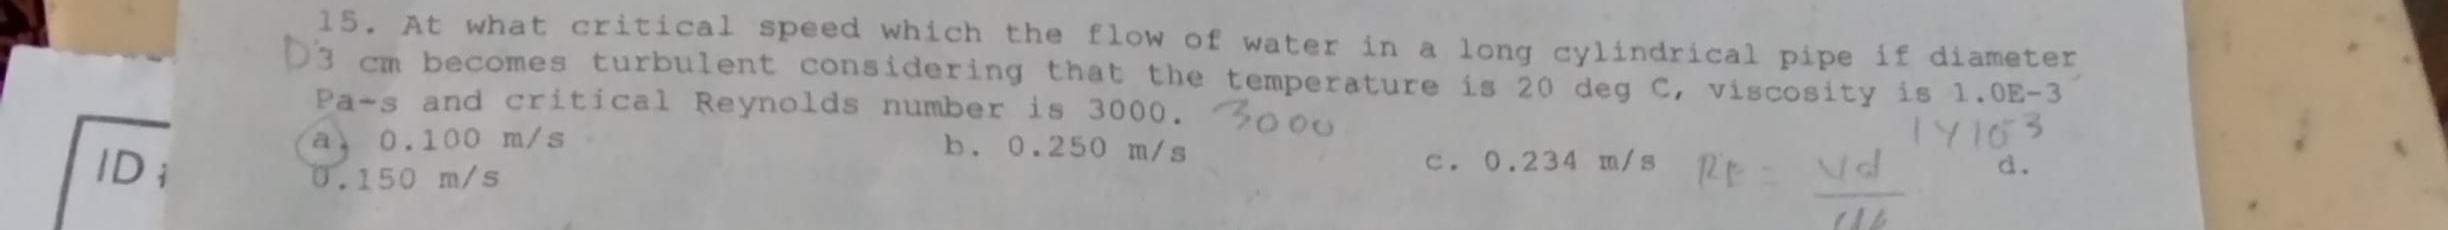 15. At what critical speed which the flow of water in a long cylindrical pipe if diameter
D 3 cm becomes turbulent considering that the temperature is 20 deg C, viscosity is 1.0E-3
Pa-s and critical Reynolds number is 3000. 3000
a. 0.100 m/s b. 0.250 m/s c. 0.234 m/s d.
0.150 m/s
ID
Re = vd